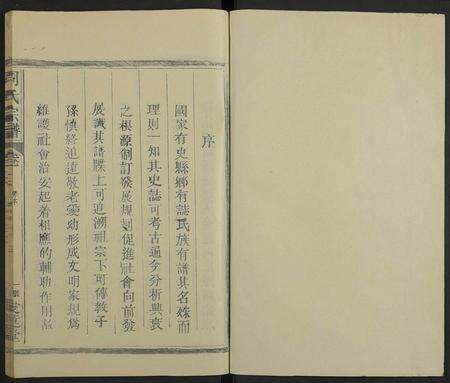 序
國家有史縣鄉有誌民族有譜其名姝而
理則一知其史誌可考古通今分析興衰
之根源制訂發展規則促進社會向前發
展識其譜牒上可追溯祖宗下可傳教子
孫慎終追遠敬老愛幼形成文明家規爲
維護社會治安起着相應的輔助作用故
氏宗譜